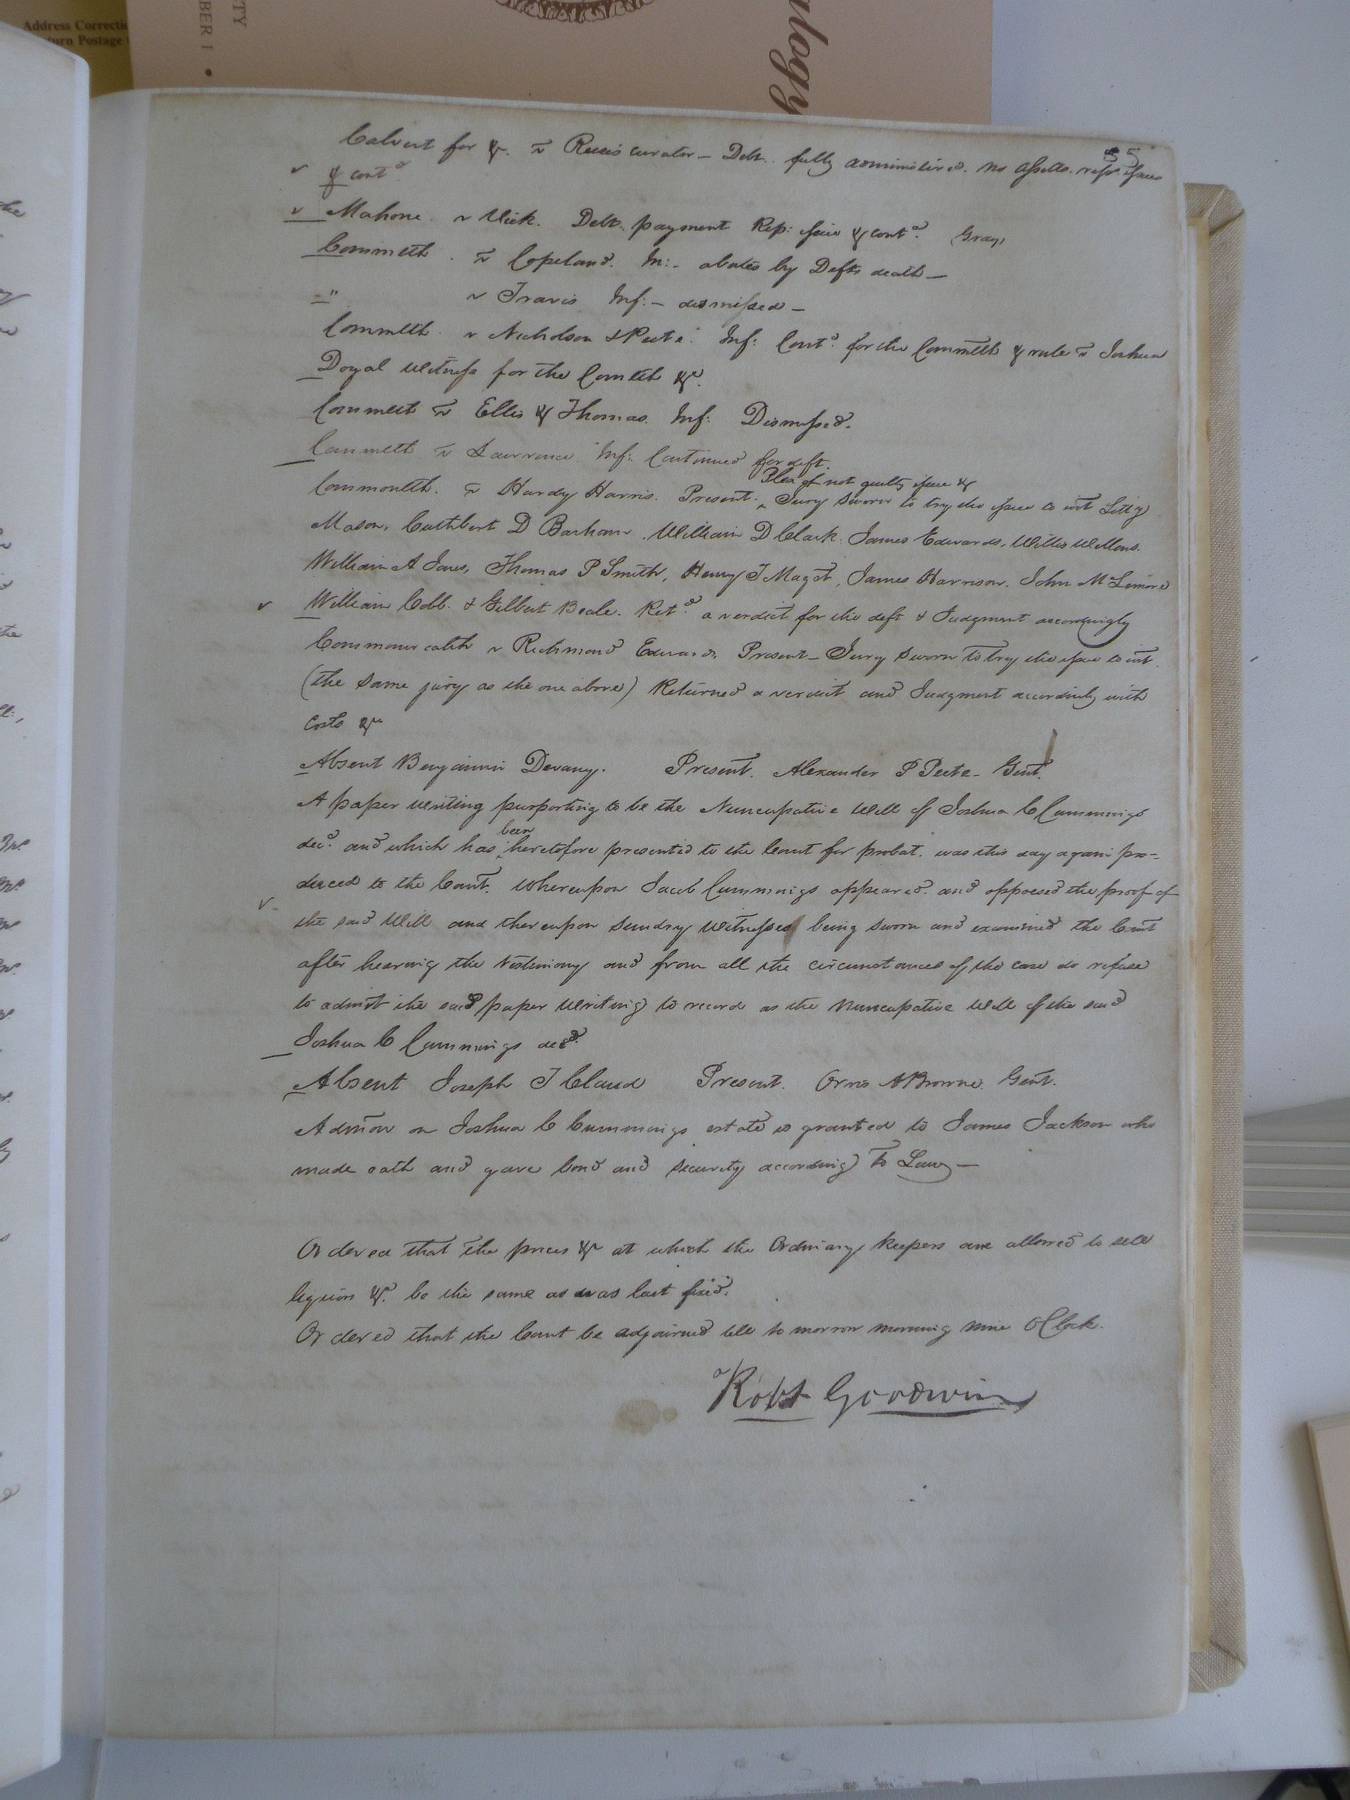 Address Correcti
turn Postage
TY
BER 1 •
logy
55
Calvert for &c. vs Reeses curator – Debt. fully administered. no assetts. repn. issue
& contd
Mahone v Vick. Debt. payment Rep: issue & contd. Gray,
Commlth. vs Copeland. In:- abates by Defts death –
–" v Travis Inf: – dismissed –
Commlth v Nicholson & Peete. Inf: Contd. for the Commlth & rule vs Joshua
Doyal witness for the Comlth &c.
Commlth vs Ellis & Thomas. Inf: Dismissed.
Commlth vs Lawrence Inf: Continued for deft.
Plea of not guilty issue &
Commonlth. vs Hardy Harris. Present. ‸ Jury sworn to try the issue to wit
Mason, Cuthbert D Barham. William D Clark. James Edwards, Willis Wellons.
William A Jones, Thomas P Smith, Henry T Maget, James Harrison. John McLemore
William Cobb. & Gilbert Beale. Retd. a verdict for the deft & Judgment accordingly
Commonwealth v Richmond Edwards Present – Jury sworn to try the issue to wit.
(the same jury as the one above) Returned a verdict and Judgment accordinly with
costs &c
Absent Benjamin Devany. Present. Alexander P Peete – Gent.
A paper writing purporting to be the Nuncupative will of Joshua C Cummings
been
decd. and which has ‸ heretofore presented to the Court for probat. was this day again pro-
duced to the Court. Whereupon Jacob Cummings appeared. and opposed the proof of
the said Will and thereupon sundry witnesses being sworn and examined the Court
after hearing the testimony and from all the circumstances of the case do refuse
to admit the said paper writing to record as the Nuncupative will of the said
Joshua C Cummings decd.
Absent Joseph T Claud Present. Orris A Browne. Gent.
Admon on Joshua C Cummings estate is granted to James Jackson who
made oath and gave bond and security according to Law –
Ordered that the prices &c at which the Ordinary keepers are allowed to sell
liquors &c. be the same as was last fixd.
Ordered that the Court be adjourned till to morrow morning nine OClock.
Robt Goodwin